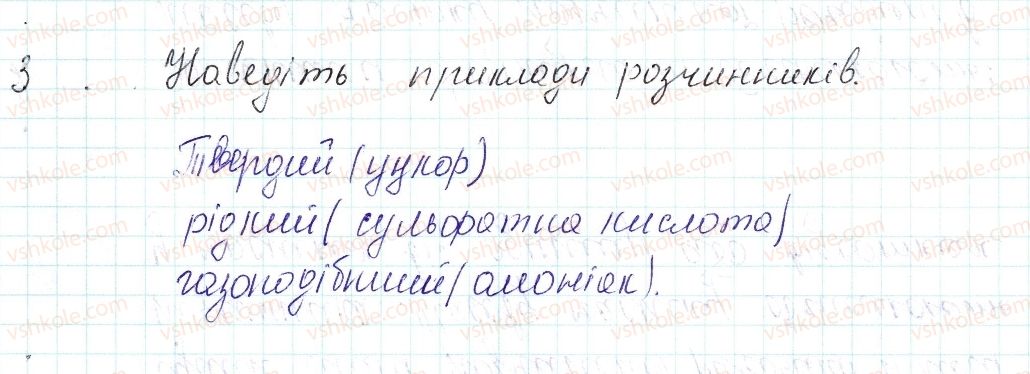 3 Наведіть приклади розчинників.
Твердий (цукор)
рідкий (сульфатна кислота)
газоподібний (амоніак).